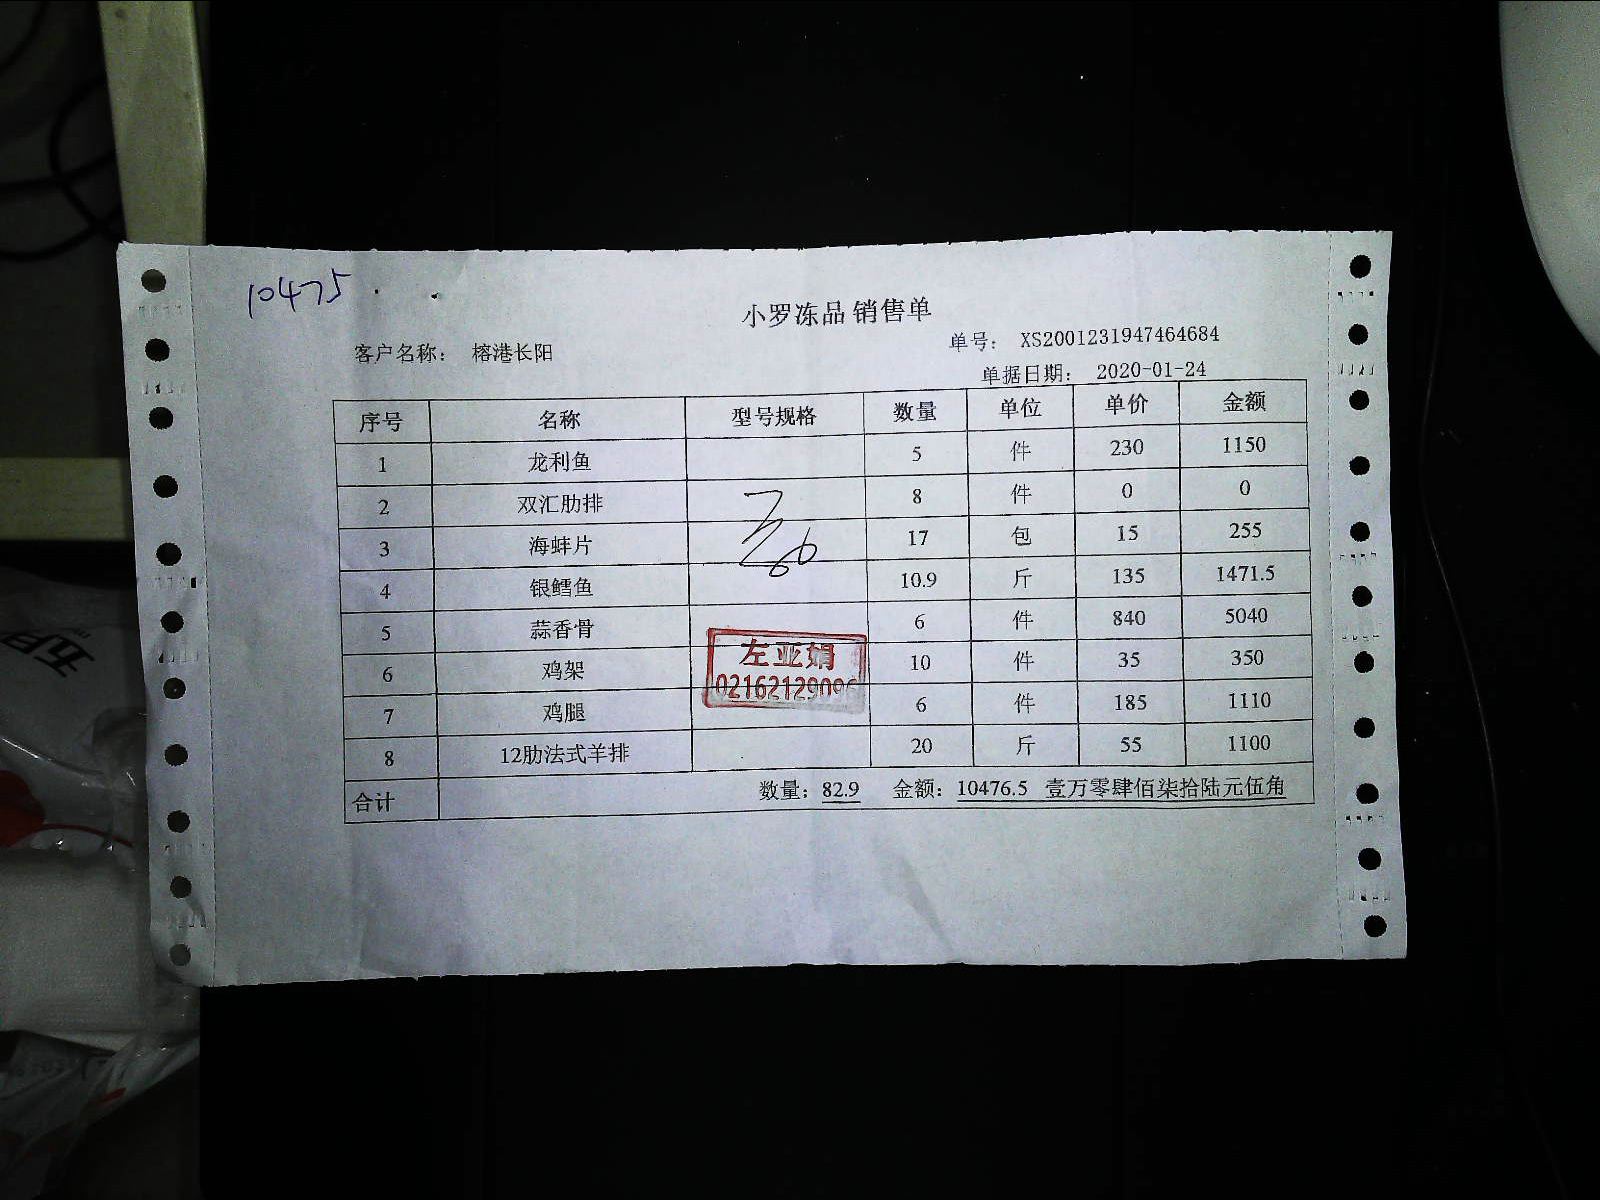 10475
小罗冻品 销售单
客户名称： 榕港长阳 单号： XS2001231947464684
单据日期： 2020-01-24
序号 名称 型号规格 数量 单位 单价 金额
1 龙利鱼 5 件 230 1150
2 双汇肋排 8 件 0 0
3 海蚌片 17 包 15 255
4 银鳕鱼 10.9 斤 135 1471.5
5 蒜香骨 6 件 840 5040
6 鸡架 10 件 35 350
7 鸡腿 6 件 185 1110
8 12肋法式羊排 20 斤 55 1100
左亚娟
02162129096
合计 数量：82.9 金额：10476.5 壹万零肆佰柒拾陆元伍角